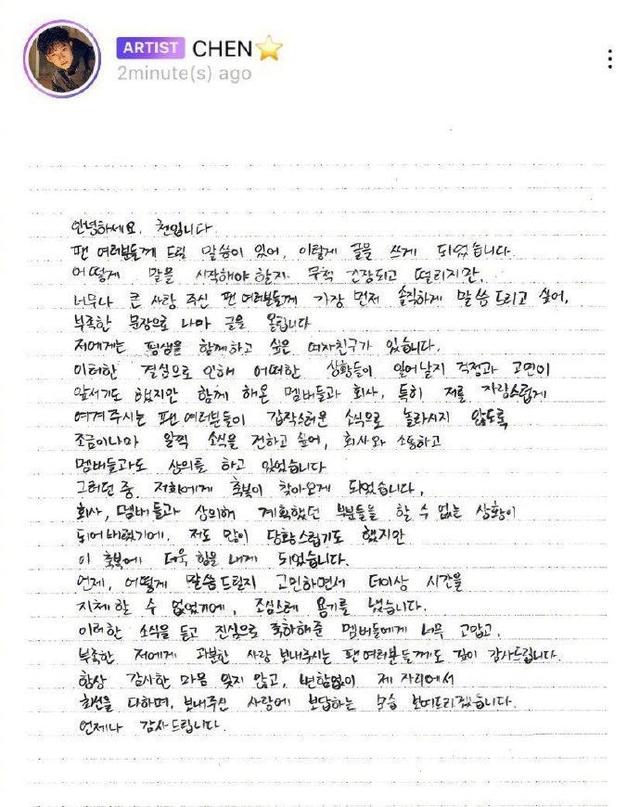 ARTIST CHEN⭐
2minute(s) ago
안녕하세요. 첸입니다
팬 여러분들께 드릴 말씀이 있어, 이렇게 글을 쓰게 되었습니다.
어떻게 말을 시작해야 할지 무척 긴장되고 떨리지만,
너무나 큰 사랑 주신 팬 여러분들께 가장 먼저 솔직하게 말씀드리고 싶어,
부족한 문장으로 나마 글을 올립니다
저에게는 평생을 함께하고 싶은 여자친구가 있습니다.
이러한 결심으로 인해 어떠한 상황들이 일어날지 걱정과 고민이
앞서기도 했지만 함께 해온 멤버들과 회사, 특히 저를 자랑스럽게
여겨주시는 팬 여러분들이 갑작스러운 소식으로 놀라시지 않도록
조금이나마 일찍 소식을 전하고 싶어, 회사와 소통하고
멤버들과도 상의를 하고 있었습니다
그러던 중 저희에게 축복이 찾아오게 되었습니다,
회사, 멤버들과 상의해 계획했던 부분들을 할 수 없는 상황이
되어버렸기에. 저도 많이 당황스럽기도 했지만
이 축복에 더욱 힘을 내게 되었습니다.
언제, 어떻게 말씀드릴지 고민하면서 더이상 시간을
지체할 수 없었기에, 조심스레 용기를 냈습니다.
이러한 소식을 듣고 진심으로 축하해준 멤버들에게 너무 고맙고,
부족한 저에게 과분한 사랑 보내주시는 팬 여러분들께도 깊이 감사드립니다.
항상 감사한 마음 잊지 않고, 변함없이 제 자리에서
최선을 다하며, 보내주신 사랑에 보답하는 모습 보여드리겠습니다.
언제나 감사드립니다.